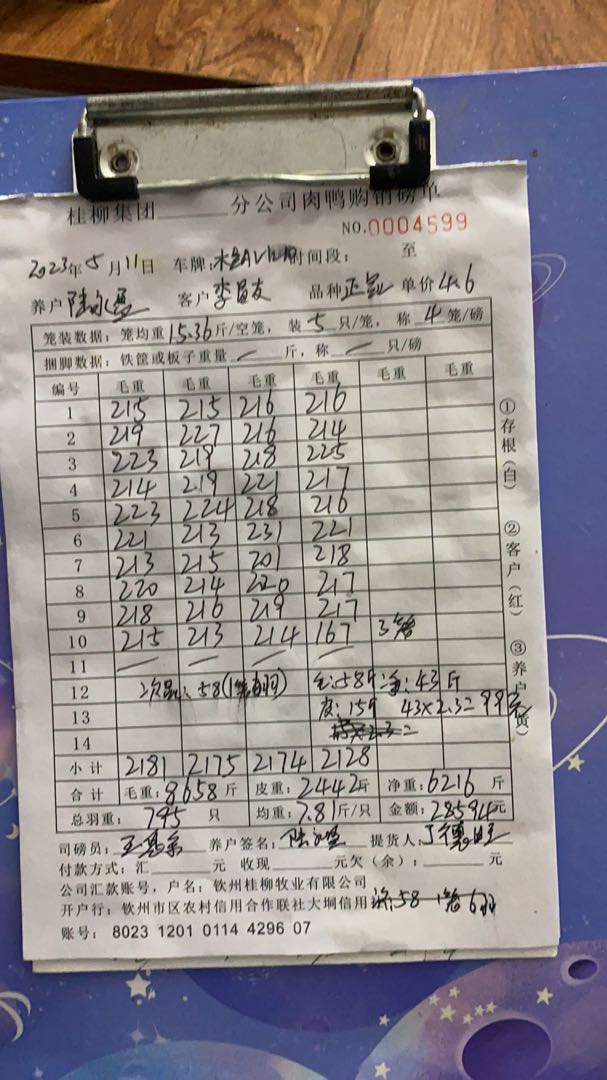 桂柳集团______分公司肉鸭购销磅单
NO.0004599
2023年5月11日 车牌: 时间段: 至
养户 陆 客户 李 品种 正 单价 4.6
笼装数据: 笼均重15.36斤/空笼, 装5只/笼, 称4笼/磅
捆脚数据: 铁筐或板子重量 / 斤, 称 / 只/磅
编号 毛重 毛重 毛重 毛重 毛重 毛重
1 215 215 216 216
2 219 227 216 214
3 223 219 218 225
4 214 219 221 217
5 223 224 218 216
6 221 213 231 221
7 213 215 201 218
8 220 214 220 217
9 218 216 219 217
10 215 213 214 167 3笼
11 / / / /
12 次品: 58(1笼6羽) 毛:58斤 净:43斤
13 皮:15斤 43×2.3=99元
14
小计 2181 2175 2174 2128
合计 毛重:8658斤 皮重:2442斤 净重:6216斤
总羽重: 795 只 均重:7.81斤/只 金额:28594元
司磅员: 王 养户签名: 陆 提货人: 丁
付款方式: 汇______元 收现______元欠(余):______元
公司汇款账号, 户名: 钦州桂柳牧业有限公司
开户行: 钦州市区农村信用合作联社大垌信用 次:58 1笼6羽
账号: 8023 1201 0114 4296 07
①存根(白) ②客户(红) ③养户(黄)